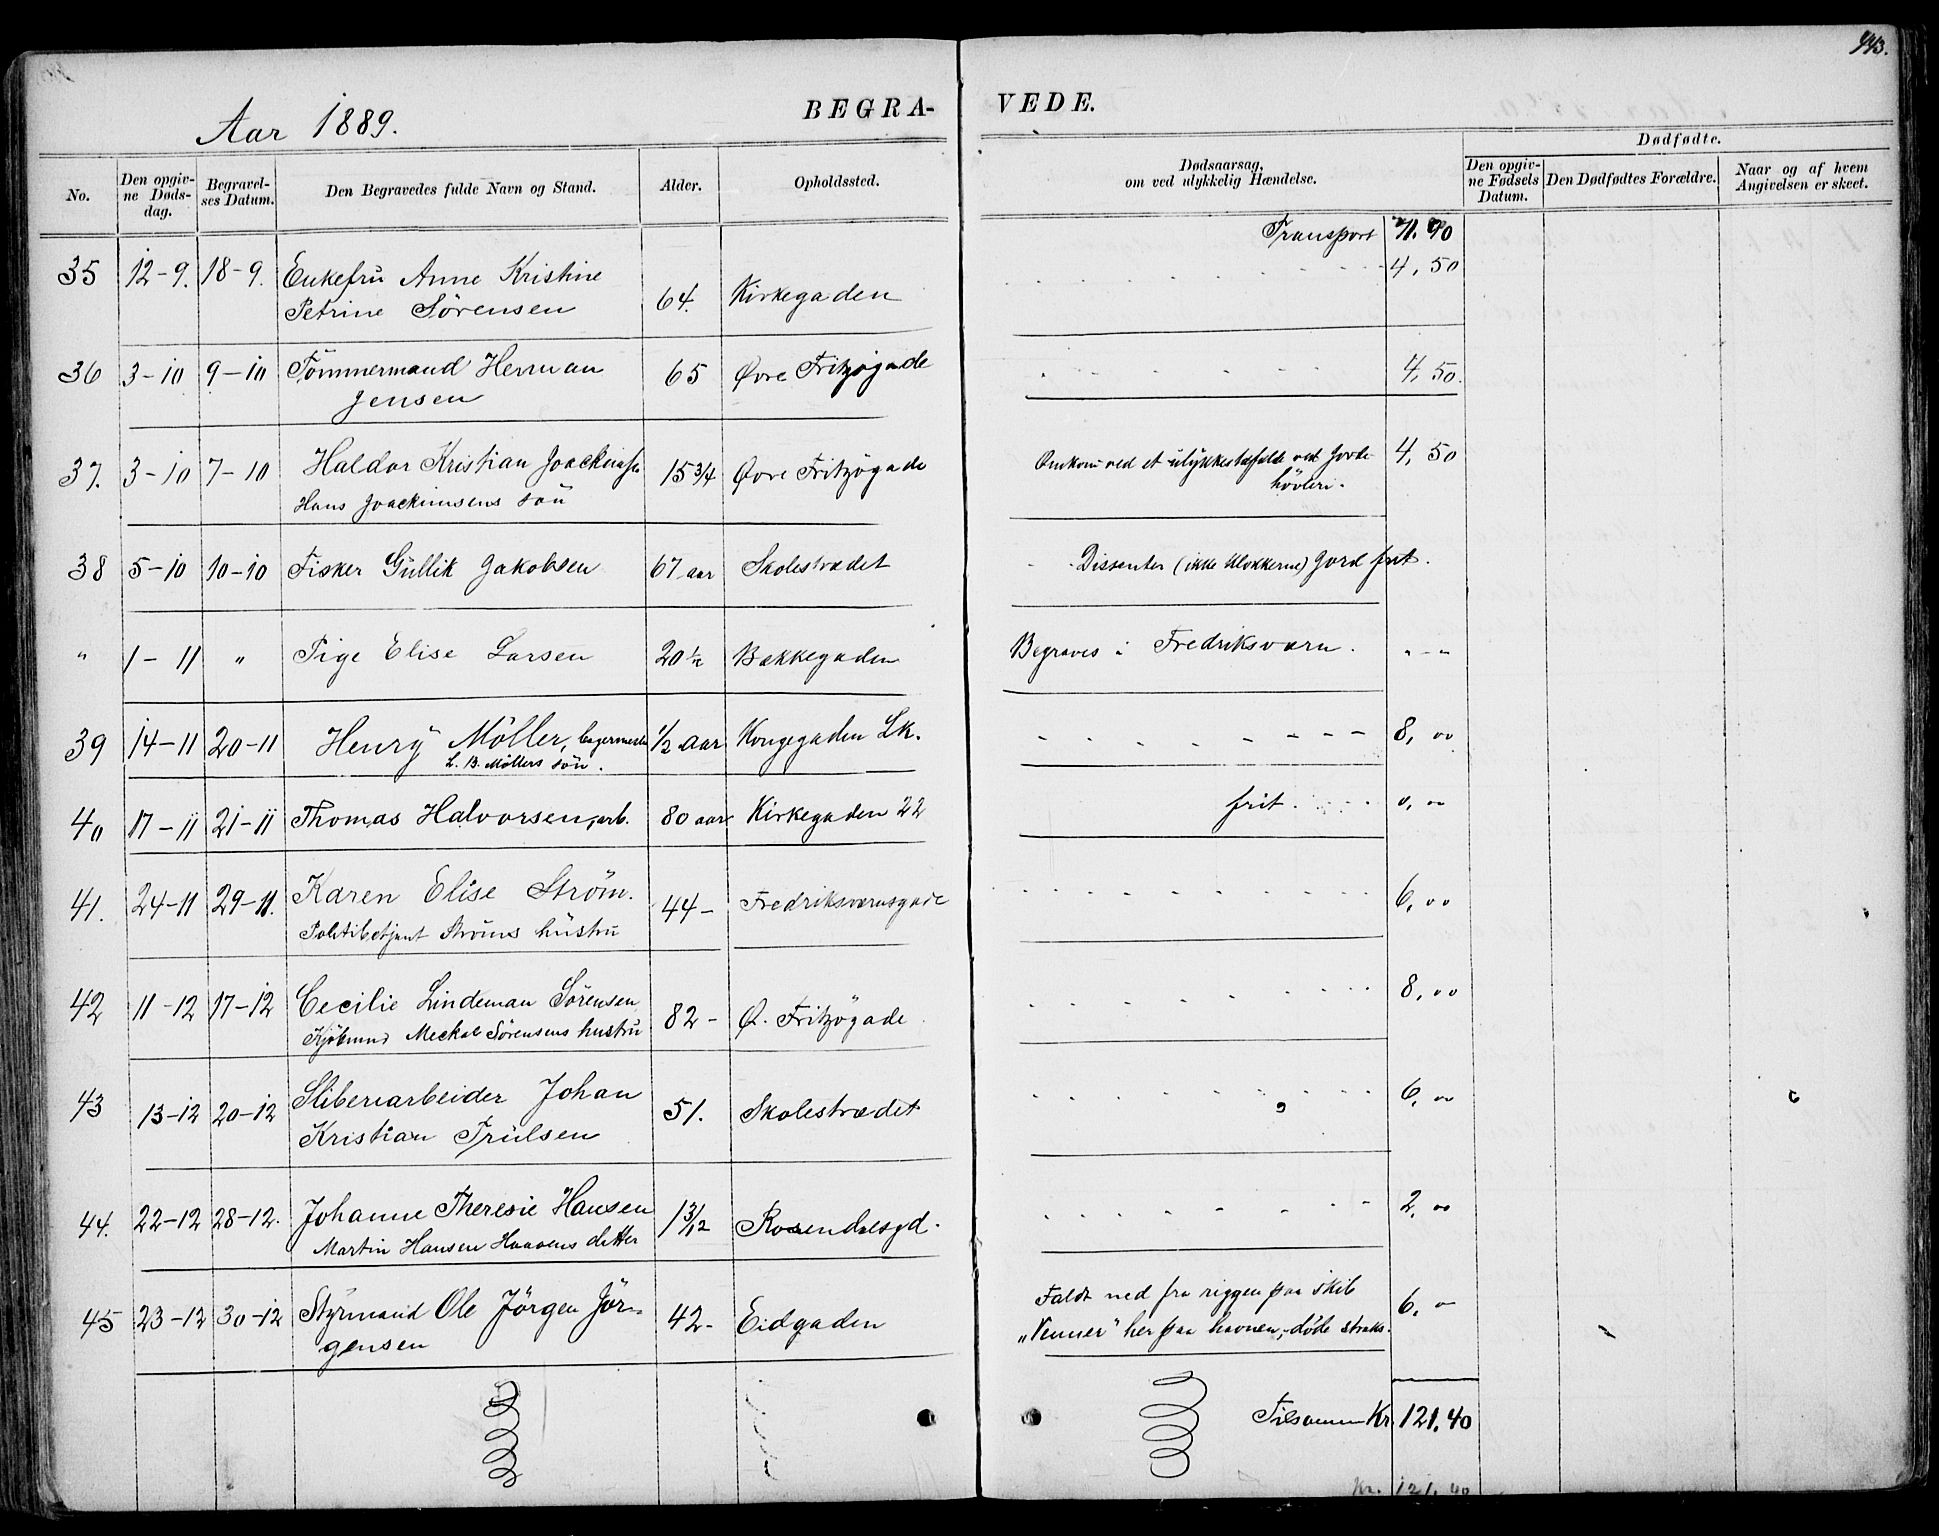 443.
Aar 1889.
BEGRA-VEDE.
No.
Den opgivne Dødsdag.
Begravelses Datum.
Den Begravedes fulde Navn og Stand.
Alder.
Opholdssted.
Dødsaarsag, om ved ulykkelig Hændelse.
Dødfødte.
Den opgivne Fødsels Datum.
Den Dødfødtes Forældre.
Naar og af hvem Angivelsen er skeet.
Transport 71.90
35 12-9. 18-9. Enkefru Anne Kristine 64. Kirkegaden 4,50
Petrine Sørensen
36 3-10 9-10 Tømmermand Herman 65 Øvre Fritzøgade 4,50.
Jensen
37. 3-10 7-10 Haldor Kristian Joachimsen 15 3/4 Øvre Fritzøgade Omkom ved et ulykkestilfælde ved Jorde- 4,50
Hans Joachimsens søn høvleri.
38 5-10 10-10 Fisker Gullik Jakobsen 67 aar Skolestrædet Dissenter (ikke klokkerne) Jord frit.
" 1-11 " Pige Elise Larsen 20 1/2 Bakkegaden Begraves i Fredriksværn. "-"
39 14-11 20-11 Henry Möller, 1/2 aar Kongegaden Lk. 8,00
L. B. Möllers søn.
40 17-11 21-11 Thomas Halvorsen, arb. 80 aar Kirkegaden 22 frit. 0,00
41. 24-11 29-11. Karen Elise Strøm. 44- Fredriksværnsgade 6,00
Politibetjent Strøms hustru
42 11-12 17-12 Cecilie Lindeman Sørensen 82- Ø. Fritzøgade 8,00
Kjøbmand Sørensens hustru
43 13-12 20-12 Sliberiarbeider Johan 51. Skolestrædet 6,00
Kristian Trulsen
44. 22-12 28-12. Johanne Theresie Hansen 1 3/12 Rosendalsgd. 2,00
Martin Hansen Haavens datter
45 23-12 30-12 Styrmand Ole Jörgen Jör- 42- Eidgaden Faldt ned fra riggen paa skib 6,-
gensen „Venner" her paa havnen, døde straks.
Tilsammen Kr. 121.40
Kr. 121.40